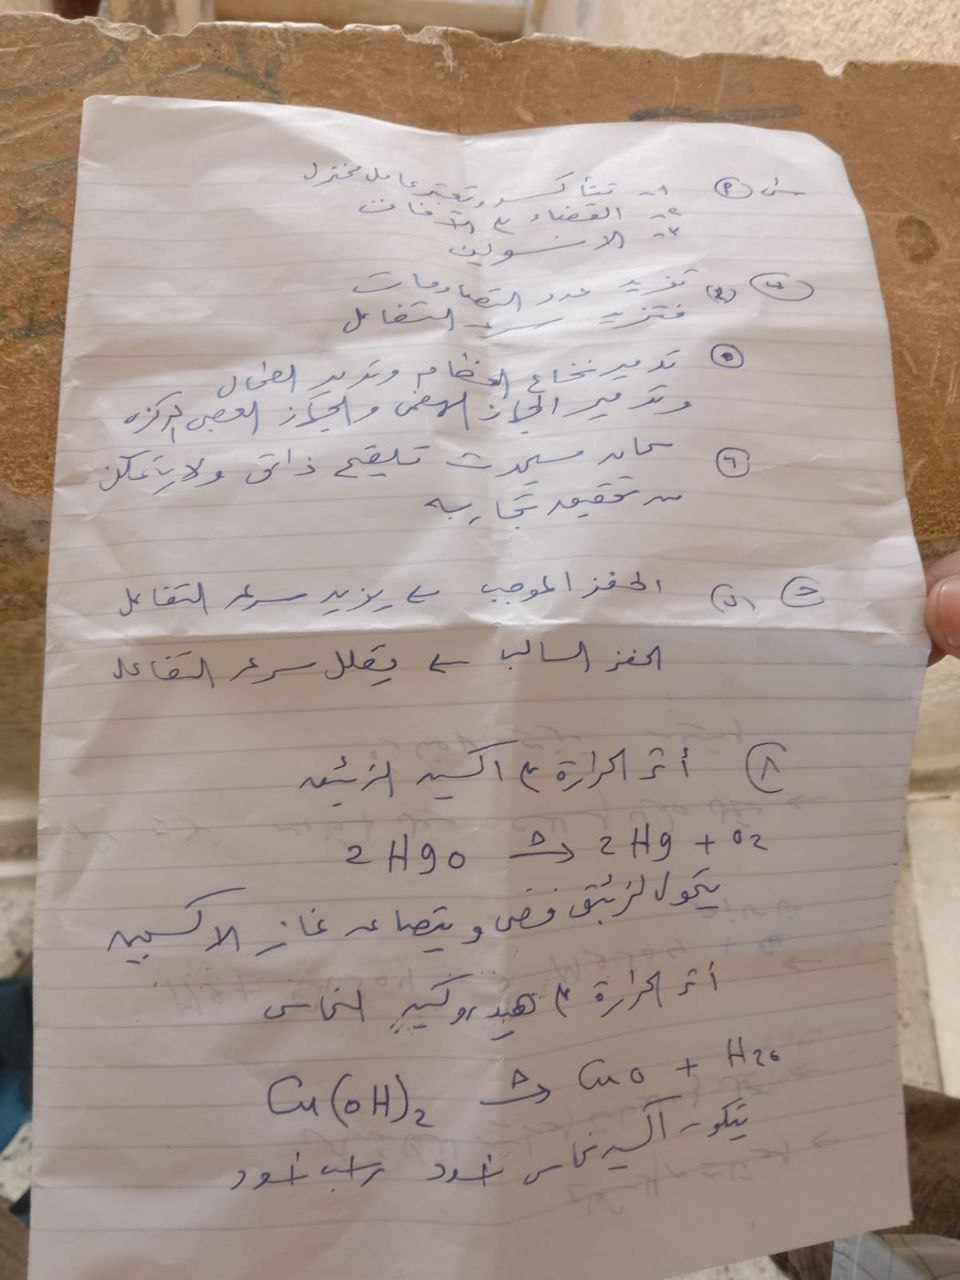 س١ (P) ١- تتأكسد وتعتبر عامل مختزل
٢- القضاء على الآفات
٣- الانسولين
(ب) (٤) تزيد عدد التصادمات
فتزيد سرعة التفاعل
(٥) تدمير نخاع العظام وتدمير الطحال
وتدمير الجهاز الهضمى والجهاز العصبى المركزى
(٦) سيحدث تلقيح ذاتى ولا يتمكن
من تحقيق تجاربه
(ج) (٧) الحفز الموجب يزيد سرعة التفاعل
الحفز السالب يقلل سرعة التفاعل
(٨) أثر الحرارة على اكسيد الزئبق
2HgO →Δ 2Hg + O2
يتحول لزئبق فضى ويتصاعد غاز الاكسجين
أثر الحرارة على هيدروكسيد النحاس
Cu(OH)2 →Δ CuO + H2O
يتكون أكسيد نحاس أسود راسب أسود